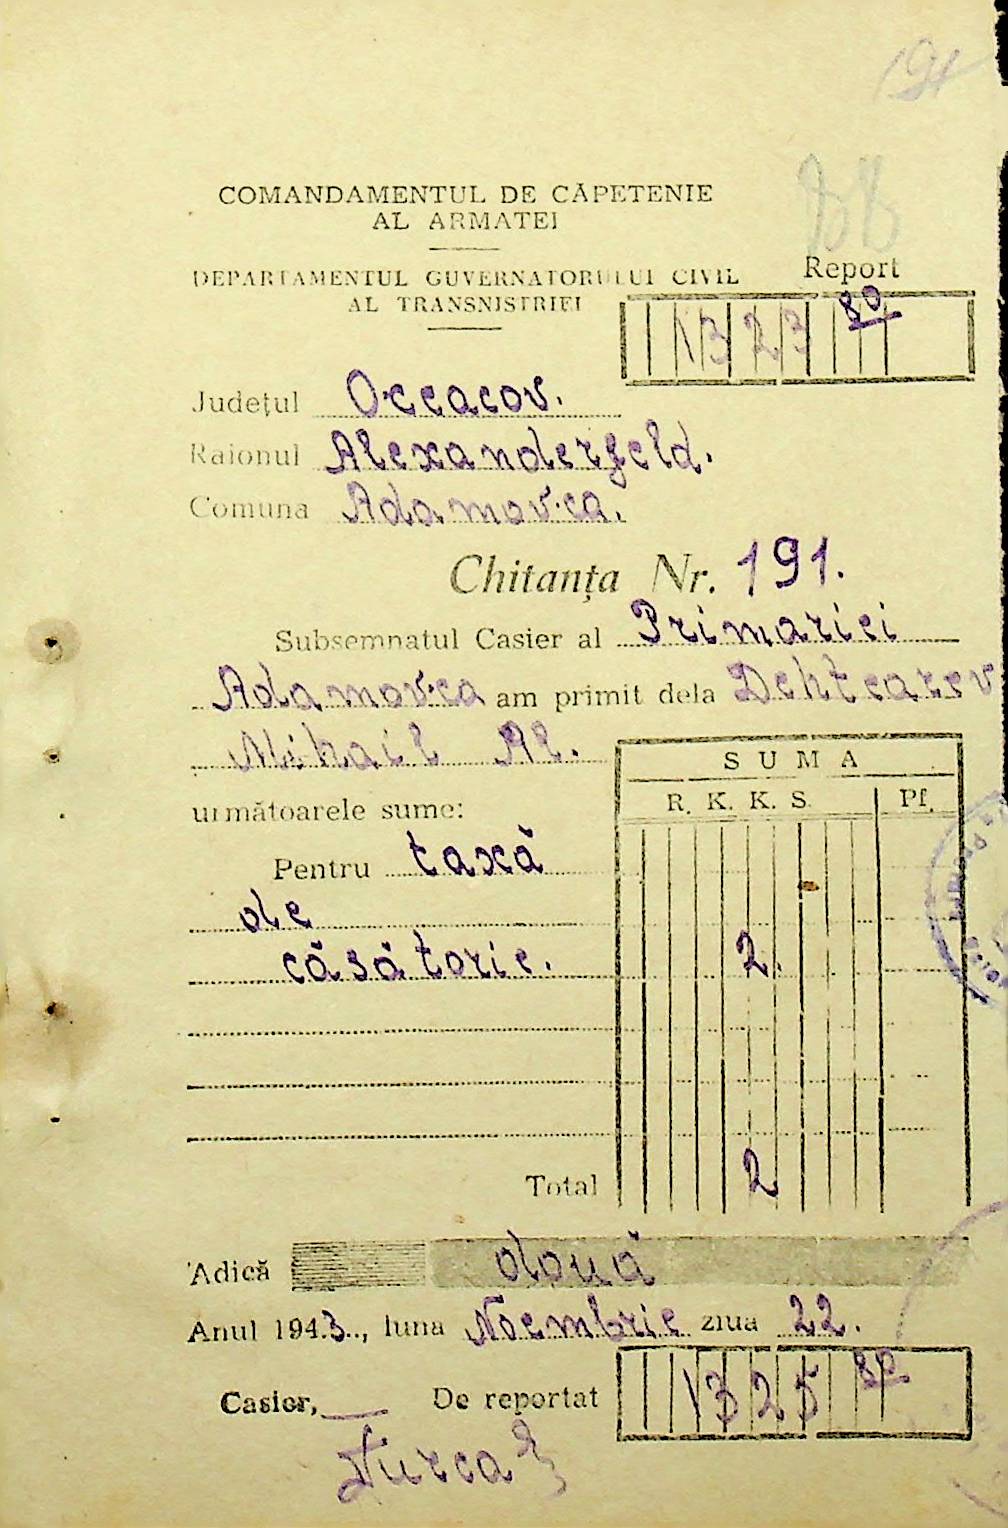 191
88
COMANDAMENTUL DE CĂPETENIE
AL ARMATEI
DEPARTAMENTUL GUVERNATORULUI CIVIL
AL TRANSNISTRIEI
Report
1323 80
Județul Oceacov.
Raionul Alexanderfeld.
Comuna Adamovca.
Chitanța Nr. 191.
Subsemnatul Casier al Primariei
Adamovca am primit dela Dehtearev
Mihail Al.
următoarele sume:
SUMA
R. K. K. S. Pf.
Pentru taxă
de
căsătorie. 2.
Total 2
Adică două
Anul 1943., luna Noembrie ziua 22.
Casier, De reportat 1325 80